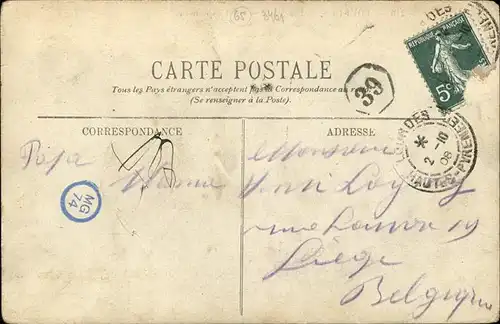 65 - 3461
CARTE POSTALE
Tous les Pays étrangers n'acceptent pas la Correspondance au
(Se renseigner à la Poste).
39
RÉPUBLIQUE FRANÇAISE
5c
LOURDES
* 2 -10 08
HAUTES-PYRENEES
CORRESPONDANCE
ADRESSE
Papa
MG 74
Monsieur
Henri
rue Louvrex 19
Liège
Belgique